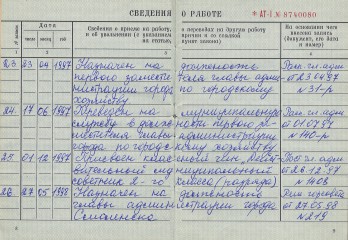 СВЕДЕНИЯ О РАБОТЕ
АТ-I № 9740080
Дата
Сведения о приеме на работу, о переводах на другую работу
и об увольнении (с указанием причин и со ссылкой
на статью, пункт закона)
На основании чего
внесена запись
(документ, его дата
и номер)
23 23 04 1997 Назначен на должность
первого заместителя главы адми-
нистрации города по городскому
хозяйству
Расп. гл. адм.
от 23.04.97
№ 31-р
24. 17 06 1997 Переведен на муниципальную
службу в должности первого
заместителя главы администрации
города по городскому хозяйству
Расп. гл. адм.
от 01.07.97
№ 140-р
25. 01 12 1997 Присвоен классный чин
муниципальный
советник 2-го класса (разряда)
Пост. гл. адм.
от 2.12.97
№ 1408
26. 27 05 1998 Назначен на должность
главы администрации города
от 27.05.98
№ 219
8
9